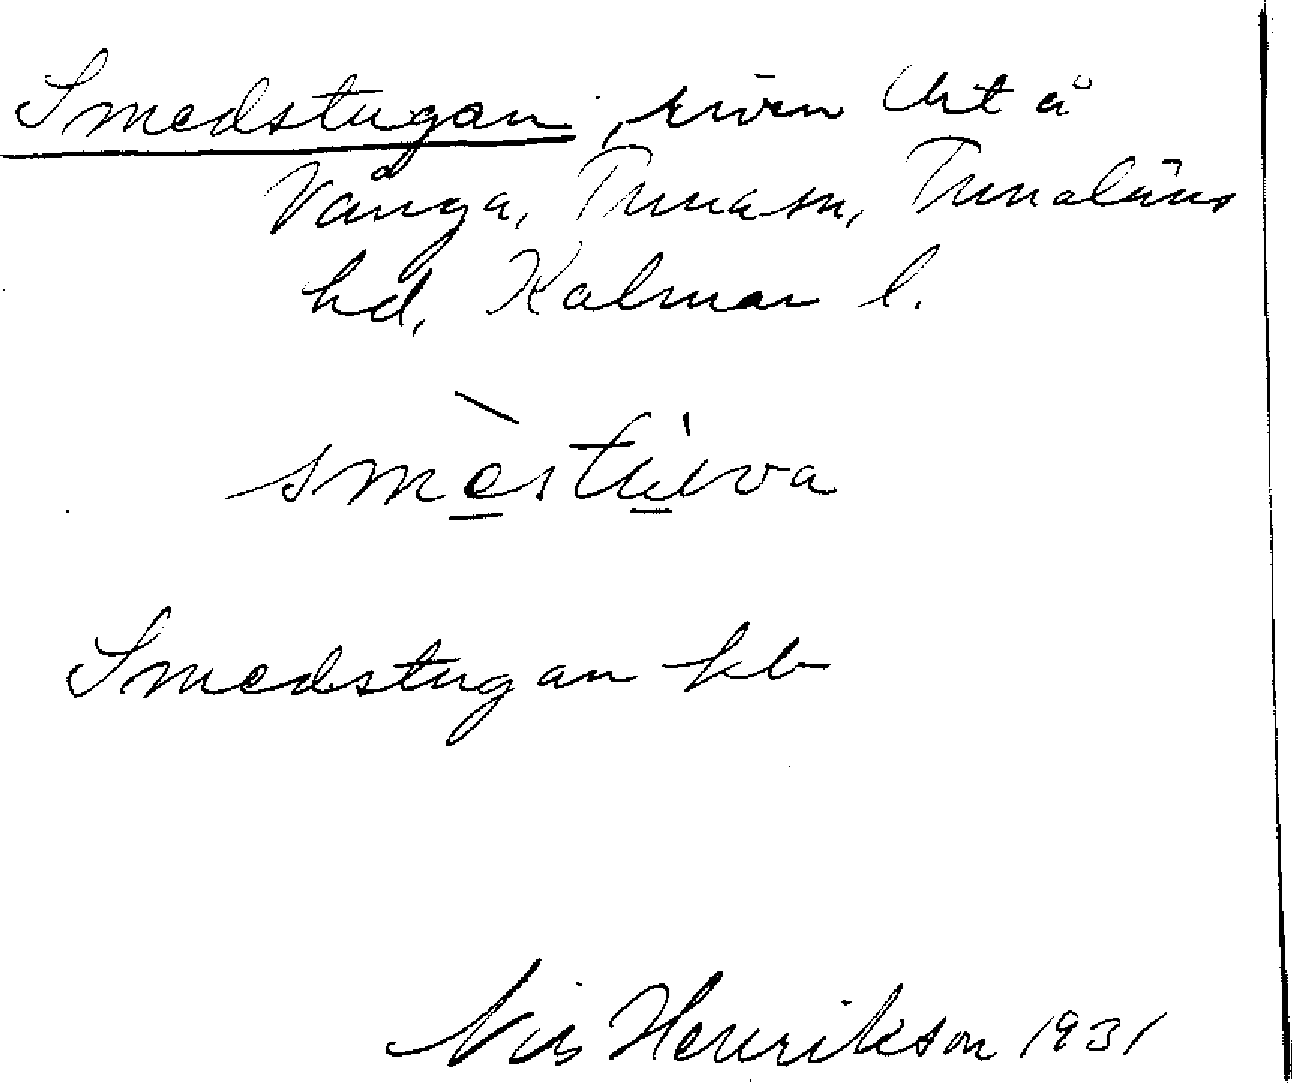 Smedstugan, riven lht å
Vånga, Tuna sn, Tunaläns
hd, Kalmar l.
smèstùva
Smedstugan kb
Nils Henrikson 1931